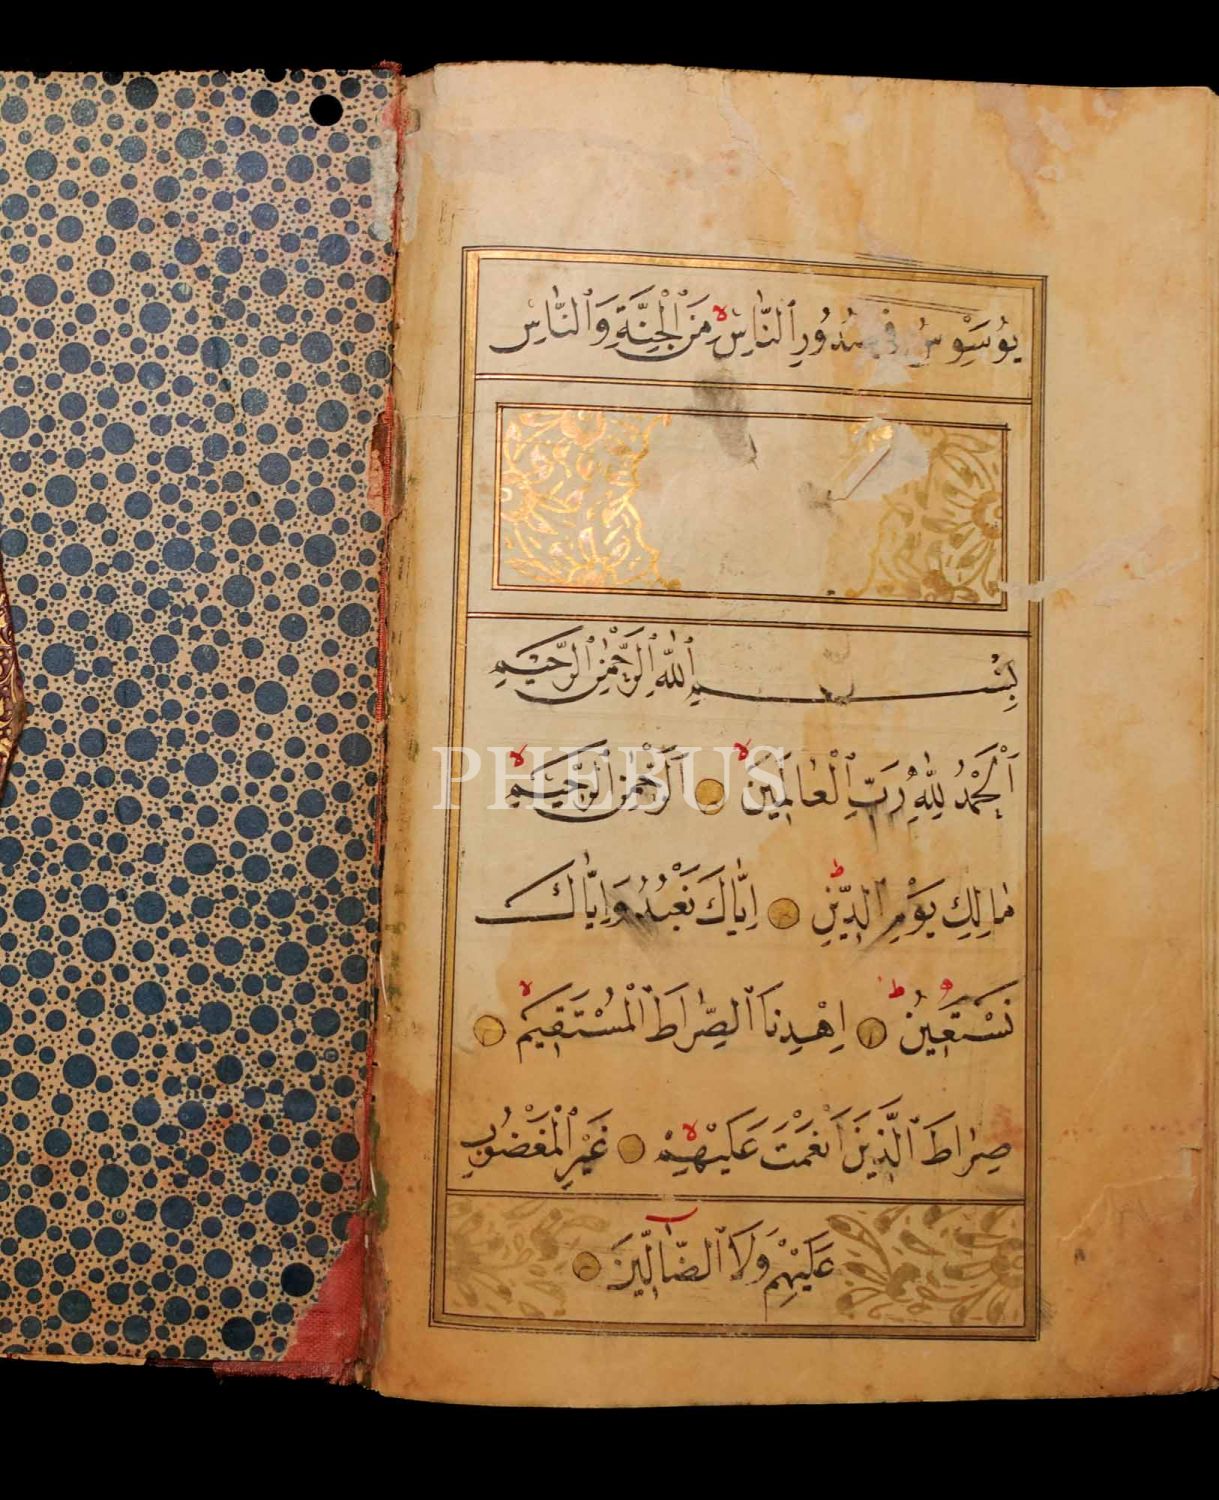 يُوَسْوِسُ فِي صُدُورِ ٱلنَّاسِ ۙ مِنَ ٱلْجِنَّةِ وَٱلنَّاسِ
بِسْمِ ٱللّٰهِ ٱلرَّحْمٰنِ ٱلرَّحِيمِ
ٱلْحَمْدُ لِلّٰهِ رَبِّ ٱلْعَالَمِينَ ۙ ٱلرَّحْمٰنِ ٱلرَّحِيمِ ۙ
مَالِكِ يَوْمِ ٱلدِّينِ ؕ اِيَّاكَ نَعْبُدُ وَاِيَّاكَ
نَسْتَعِينُ ؕ اِهْدِنَا ٱلصِّرَاطَ ٱلْمُسْتَقِيمَ ۙ
صِرَاطَ ٱلَّذِينَ اَنْعَمْتَ عَلَيْهِمْ ۙ غَيْرِ ٱلْمَغْضُوبِ
عَلَيْهِمْ وَلَا ٱلضَّالِّينَ
PHEBUS